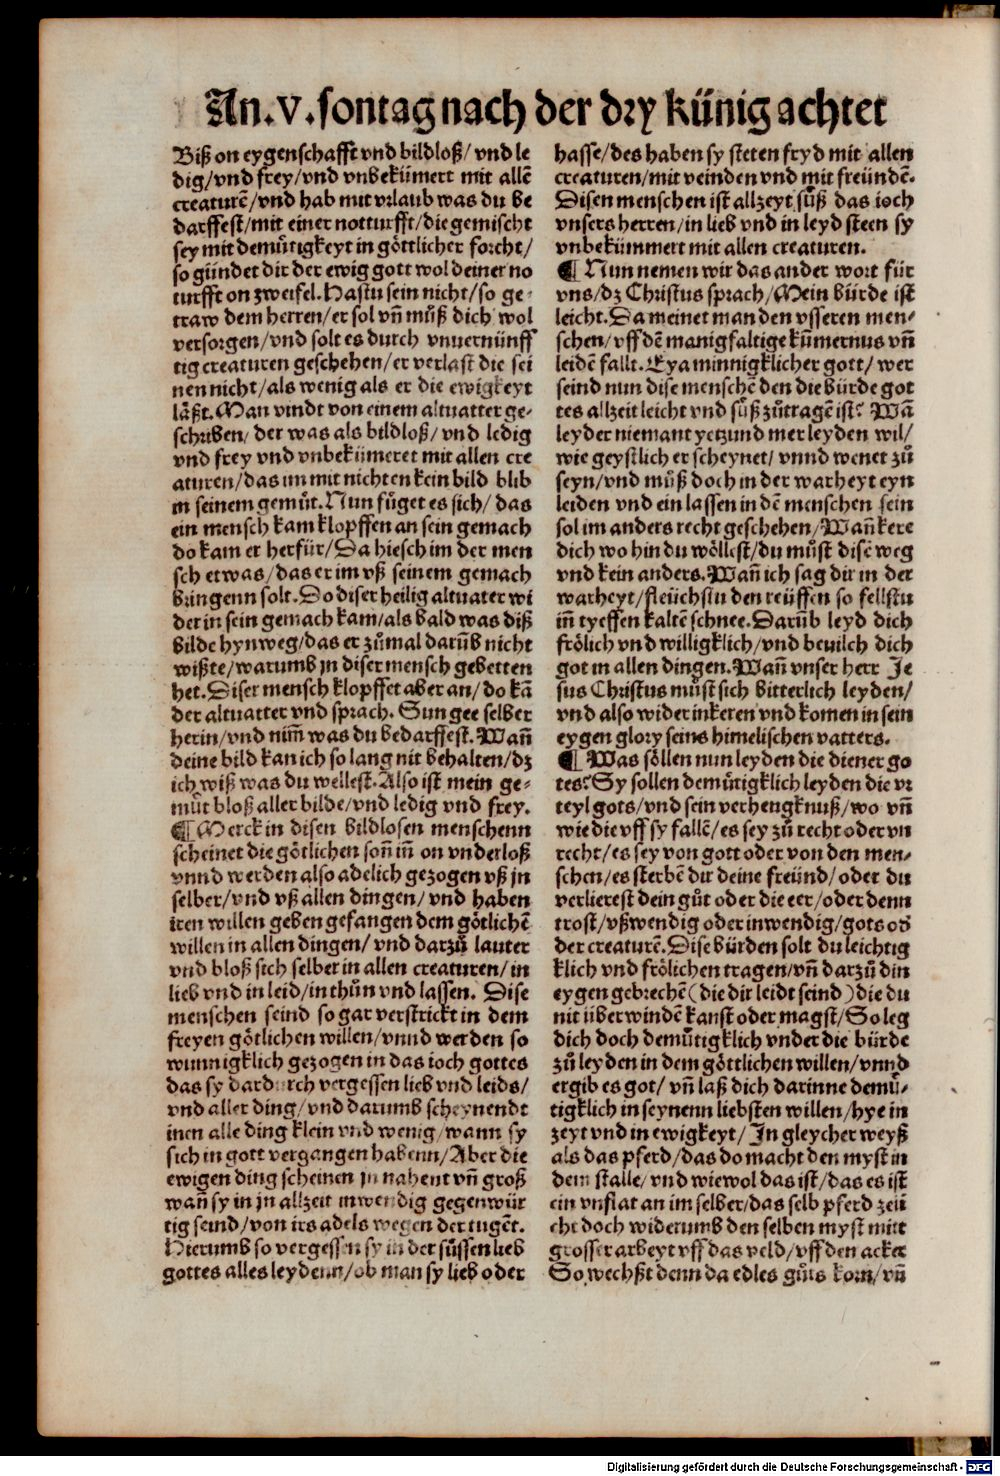 An.v.sontag nach der dry künig achtet
Biß on eygenschafft vnd bildloß/ vnd le
dig/vnd frey/vnd vnbekümert mit allē
creaturē/vnd hab mit vrlaub was du be
darffest/mit einer notturfft/die gemischt
sey mit demuͤtigkeyt in göttlicher forcht/
so gündet dir der ewig gott wol deiner no
turfft on zweifel. Hastu sein nicht/so ge⸗
traw dem herren/er sol vn̄ muͤß dich wol
versorgen/vnd solt es durch vnuernünff
tig creaturen geschehen/er verlast die sei
nen nicht/als wenig als er die ewigkeyt
lāßt. Man vindt von einem altuatter ge⸗
schriben/ der was als bildloß/ vnd ledig
vnd frey vnd vnbekümeret mit allen cre
aturen/das im mit nichten kein bild blib
in seinem gemuͤt. Nun füget es sich/ das
ein mensch kam klopffen an sein gemach
do kam er herfür/Da hiesch im der men
sch etwas/das er im vß seinem gemach
bringenn solt. Do diser heilig altuater wi
der in sein gemach kam/als bald was diß
bilde hynweg/das er zuͦmal darūb nicht
wißte/warumb jn diser mensch gebetten
het. Diser mensch klopffet aber an/do kā
der altuatter vnd sprach. Sun gee selber
herin/vnd nim̄ was du bedarffest. Wan̄
deine bild kan ich so lang nit behalten/dz
ich wiß was du wellest. Also ist mein ge⸗
muͤt bloß aller bilde/vnd ledig vnd frey.
¶ Merck in disen bildlosen menschenn
scheinet die götlichen son̄ in̄ on vnderloß
vnnd werden also adelich gezogen vß jn
selber/vnd vß allen dingen/ vnd haben
iren willen geben gefangen dem götlichē
willen in allen dingen/ vnd darzuͦ lauter
vnd bloß sich selber in allen creaturen/in
lieb vnd in leid/in thuͦn vnd lassen. Dise
menschen seind so gar verstrickt in dem
freyen götlichen willen/vnnd werden so
wunnigklich gezogen in das ioch gottes
das sy dardurch vergessen lieb vnd leids/
vnd aller ding/vnd darumb scheynendt
inen alle ding klein vnd wenig/wann sy
sich in gott vergangen habenn/Aber die
ewigen ding scheinen jn nahent vn̄ groß
wan̄ sy in jn allzeit inwendig gegenwür
tig seind/von irs adels wegen der tugēt.
Hierumb so vergessen sy in der süssen lieb
gottes alles leydenn/ob man sy lieb oder
hasse/des haben sy steten fryd mit allen
creaturen/mit veinden vnd mit freündē.
Disen menschen ist allzeyt süß das ioch
vnsers herren/in lieb vnd in leyd steen sy
vnbekümmert mit allen creaturen.
¶ Nun nemen wir das ander wort für
vns/dz Christus sprach/Mein bürde ist
leicht. Da meinet man den vsseren men⸗
schen/vff dē manigfaltige kūmernus vn̄
leidē fallt. Eya minnigklicher gott/ wer
seind nun dise menschē den die bürde got
tes allzeit leicht vnd süß zuͦtragē ist? Wā
leyder niemant yetzund mer leyden wil/
wie geystlich er scheynet/ vnnd wenet zuͦ
seyn/vnd muͤß doch in der warheyt eyn
leiden vnd ein lassen in dē menschen sein
sol im anders recht geschehen/Wan̄ kere
dich wo hin du wöllest/du muͤst disē weg
vnd kein anders. Wan̄ ich sag dir in der
warheyt/fleüchstu den reüffen so fellstu
in̄ tyeffen kaltē schnee. Darūb leyd dich
frölich vnd willigklich/vnd beuilch dich
got in allen dingen. Wan̄ vnser herr Je
sus Christus muͤst sich bitterlich leyden/
vnd also wider inkeren vnd komen in sein
eygen glory seins himelischen vatters.
¶ Was söllen nun leyden die diener go
tes? Sy sollen demuͤtigklich leyden die vr
teyl gots/vnd sein verhengknuß/wo vn̄
wie die vff sy fallē/es sey zuͦ recht oder vn
recht/es sey von gott oder von den men⸗
schen/es sterbē dir deine freünd/oder du
verlierest dein guͦt oder die eer/oder denn
trost/vßwendig oder inwendig/gots od̄
der creaturē. Dise bürden solt du leichtig
klich vnd frölichen tragen/vn̄ darzuͦ din
eygen gebrechē (die dir leidt seind) die du
nit überwindē kanst oder magst/So leg
dich doch demuͤtigklich vnder die bürde
zuͦ leyden in dem göttlichen willen/vnnd
ergib es got/ vn̄ laß dich darinne demuͤ⸗
tigklich in seynenn liebsten willen/hye in
zeyt vnd in ewigkeyt/ In gleycher weyß
als das pferd/das do macht den myst in
dem stalle/vnd wiewol das ist/das es ist
ein vnflat an im selber/das selb pferd zeü
cht doch widerumb den selben myst mitt
grosser arbeyt vff das veld/vff den acker
So wechßt denn da edles guͦts korn/vn̄
Digitalisierung gefördert durch die Deutsche Forschungsgemeinschaft - DFG